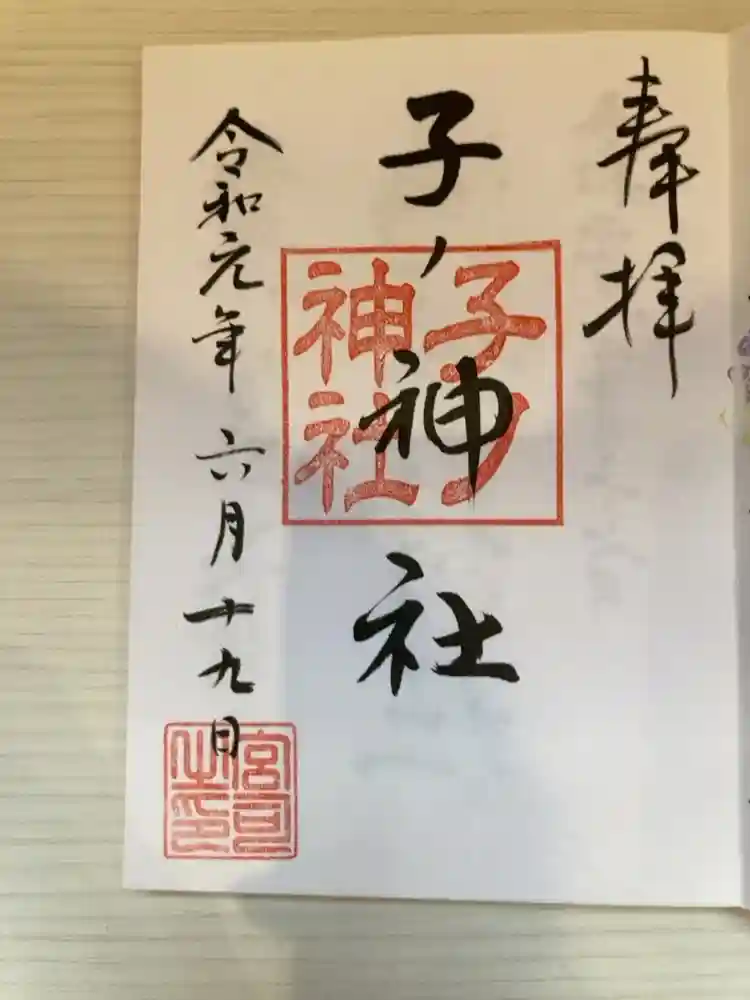 奉拝
子ノ神社
子ノ
神社
令和元年 六月十九日
宮司
之印